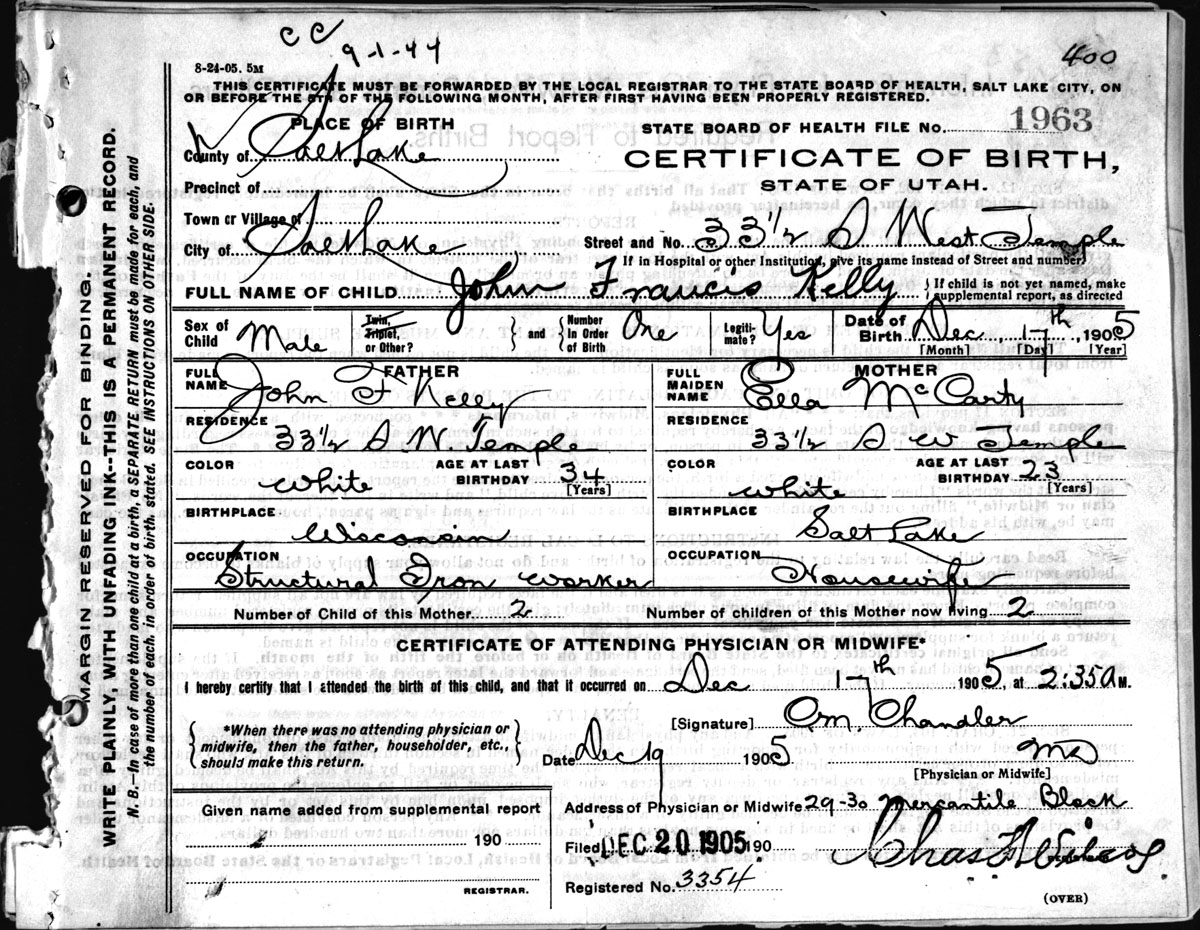 CC 9-1-44
400
8-24-05. 5M
THIS CERTIFICATE MUST BE FORWARDED BY THE LOCAL REGISTRAR TO THE STATE BOARD OF HEALTH, SALT LAKE CITY, ON
OR BEFORE THE 5TH OF THE FOLLOWING MONTH, AFTER FIRST HAVING BEEN PROPERLY REGISTERED.
PLACE OF BIRTH
STATE BOARD OF HEALTH FILE NO. 1963
County of Salt Lake
CERTIFICATE OF BIRTH,
STATE OF UTAH.
Precinct of
Town or Village of
City of Salt Lake
Street and No. 33 1/2 S West Temple
If in Hospital or other Institution, give its name instead of Street and number
FULL NAME OF CHILD John Francis Kelly
If child is not yet named, make
supplemental report, as directed
Sex of Child Male
Twin, Triplet, or Other?
and
Number In Order of Birth One
Legiti-mate? Yes
Date of Birth Dec 17th, 1905
[Month] [Day] [Year]
FATHER
FULL NAME John F Kelly
RESIDENCE
33 1/2 S. W. Temple
COLOR white
AGE AT LAST BIRTHDAY 34
[Years]
BIRTHPLACE
Wisconsin
OCCUPATION
Structural Iron worker
MOTHER
FULL MAIDEN NAME Ella McCarty
RESIDENCE
33 1/2 S W Temple
COLOR white
AGE AT LAST BIRTHDAY 23
[Years]
BIRTHPLACE
Salt Lake
OCCUPATION
Housewife
Number of Child of this Mother 2
Number of children of this Mother now living 2
CERTIFICATE OF ATTENDING PHYSICIAN OR MIDWIFE*
I hereby certify that I attended the birth of this child, and that it occurred on Dec 17th 1905, at 2:35 A M.
*When there was no attending physician or
midwife, then the father, householder, etc.,
should make this return.
[Signature] Chandler
Date Dec 19 1905.
MD
[Physician or Midwife]
Given name added from supplemental report
190
REGISTRAR.
Address of Physician or Midwife 29-30 Mercantile Block
Filed DEC 20 1905 190
Chas
Registered No. 3354
(OVER)
MARGIN RESERVED FOR BINDING.
WRITE PLAINLY, WITH UNFADING INK--THIS IS A PERMANENT RECORD.
N. B.—In case of more than one child at a birth, a SEPARATE RETURN must be made for each, and
the number of each, in order of birth, stated. SEE INSTRUCTIONS ON OTHER SIDE.